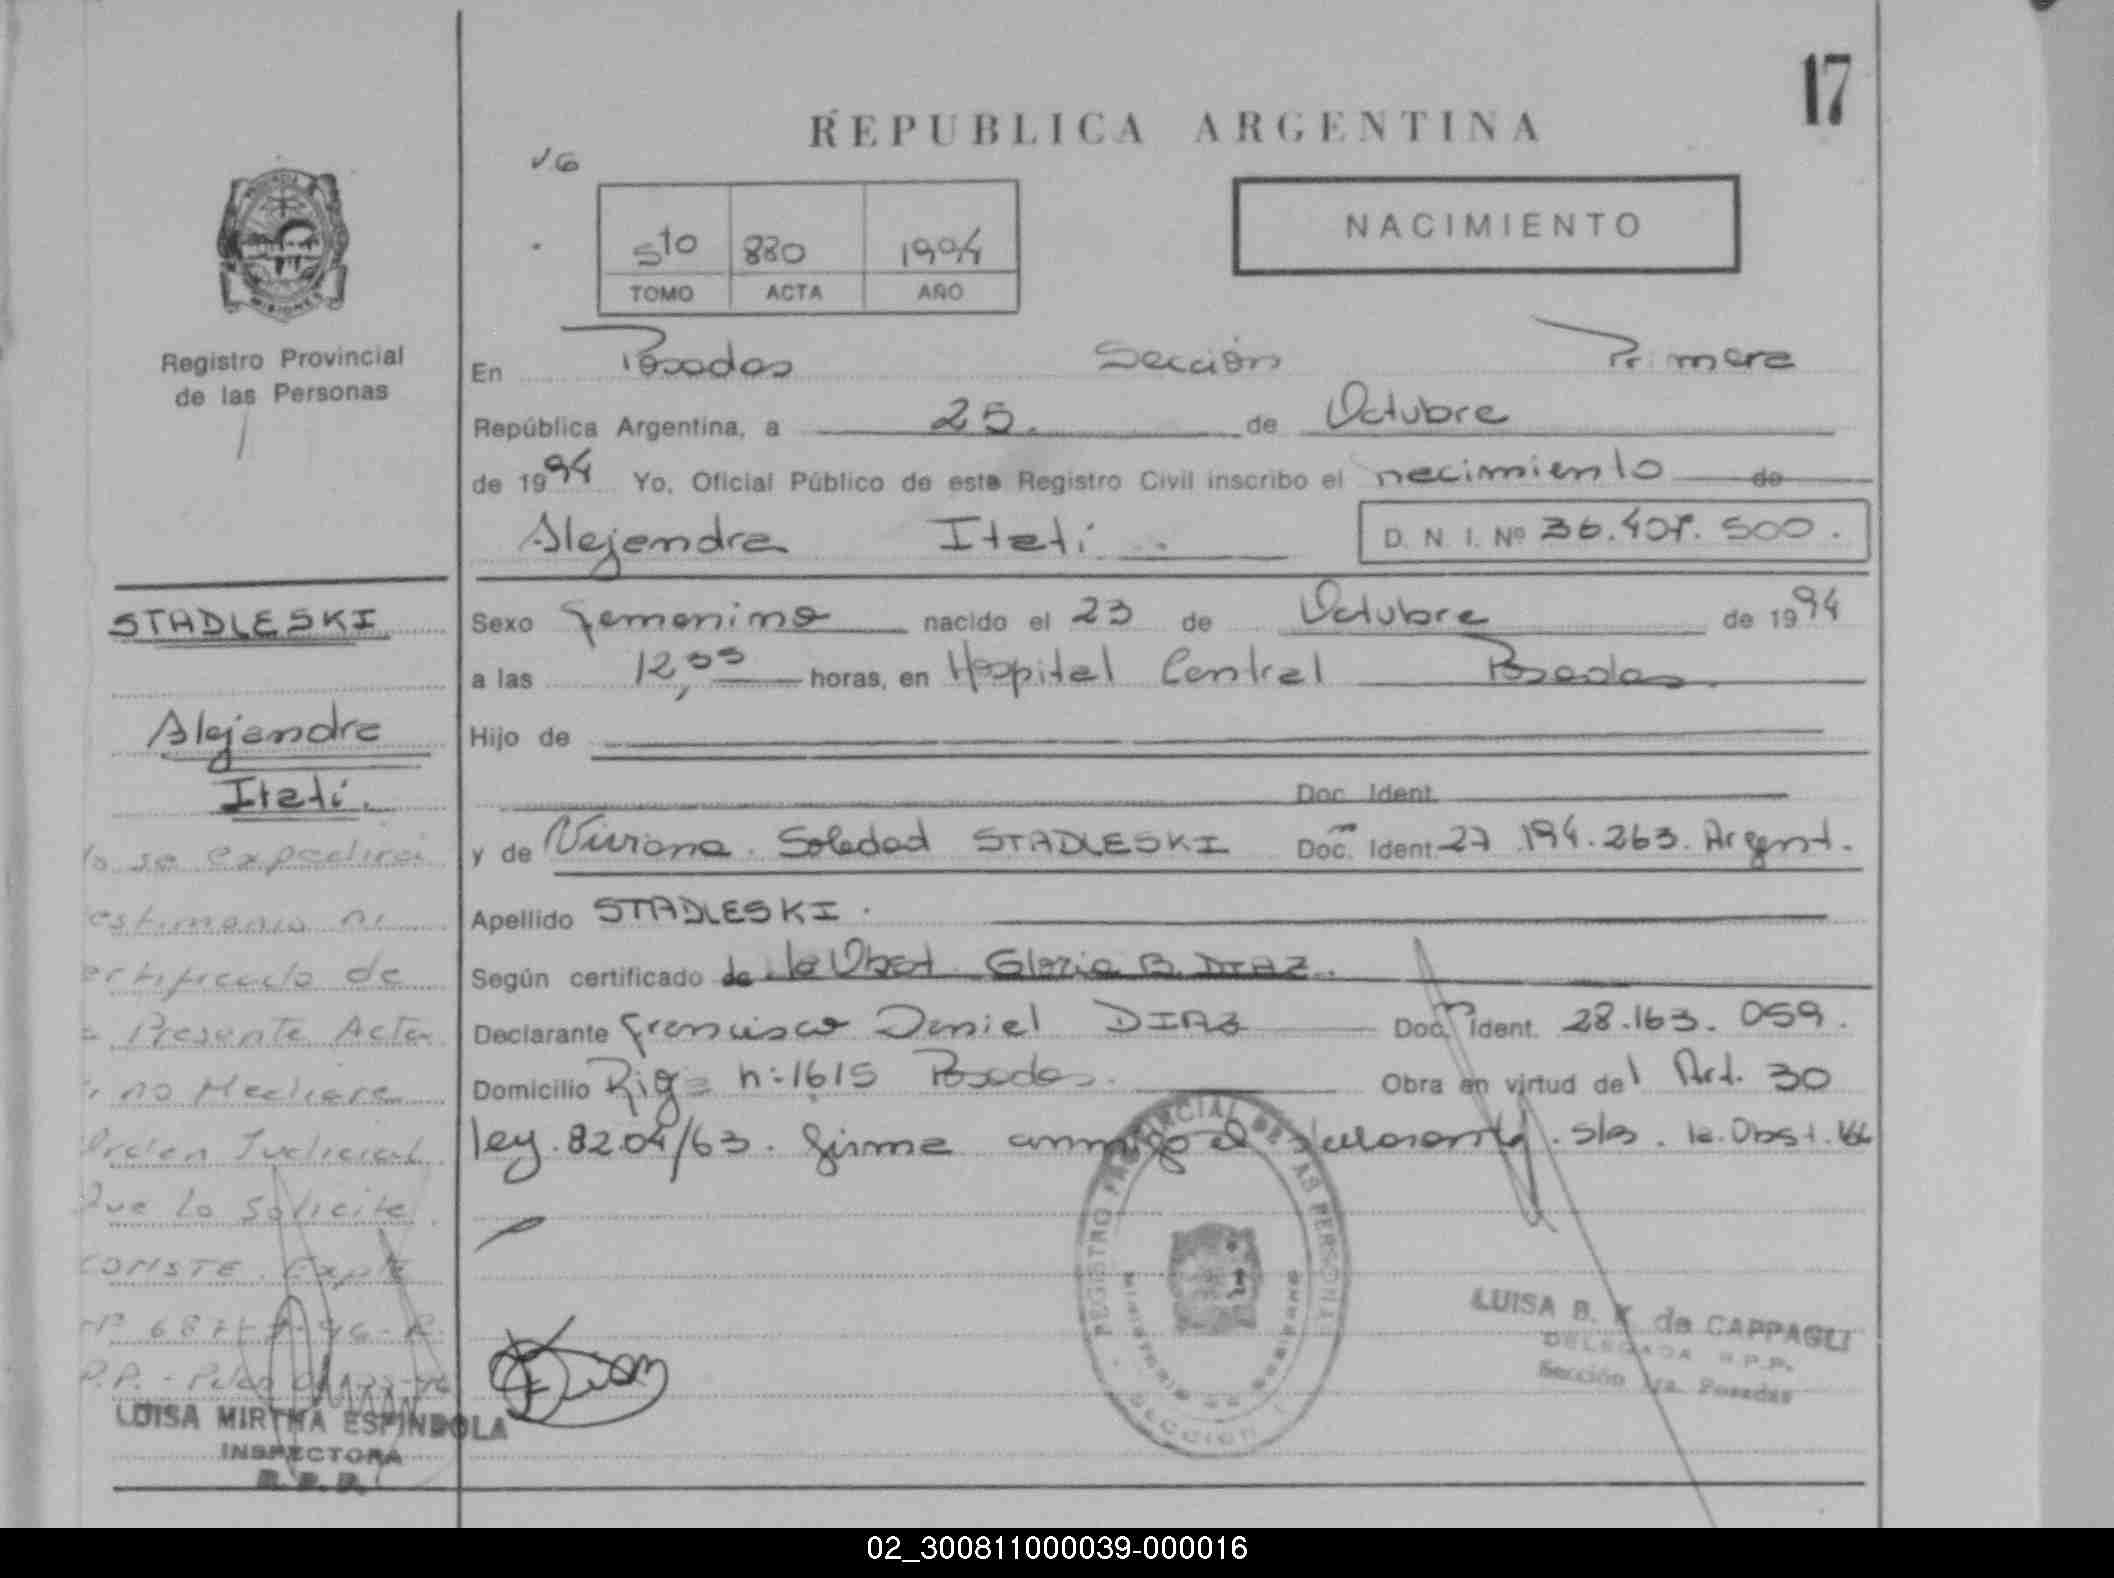 17
REPUBLICA ARGENTINA
5to 880 1994
TOMO ACTA AÑO
NACIMIENTO
PROVINCIA
MISIONES
Registro Provincial
de las Personas
En Posadas Sección Primera
República Argentina, a 25. de Octubre
de 1994 Yo, Oficial Público de este Registro Civil inscribo el nacimiento de
Alejandra Itatí. D. N. I. Nº 36.407.500.
STADLESKI
Alejandra
Itatí.
Sexo Femenino nacido el 23 de Octubre de 1994
a las 12,55 horas, en Hospital Central Posadas.
Hijo de
Doc. Ident.
y de Viviana Soledad STADLESKI Doc. Ident. 27.194.263. Argent.
Apellido STADLESKI.
Según certificado de la Obst. Gloria B. DIAZ.
Declarante Francisco Daniel DIAZ Doc. Ident. 28.163.059.
Domicilio nº 1615 Posadas. Obra en virtud del Art. 30
ley. 8204/63. firma conmigo el declarante. s/b. la Obst.
se expedirá
estimonio ni
ertificado de
Presente Acta
no Mediare
Orden Judicial
Que lo Solicite.
CONSTE. Expte
LUISA MIRTHA ESPINDOLA
INSPECTORA
R.P.P.
REGISTRO PROVINCIAL DE LAS PERSONAS
MINISTERIO DE GOBIERNO
SECCION 1
LUISA B. K de CAPPAGLI
DELEGADA R.P.P.
Sección 1ra. Posadas
02_300811000039-000016